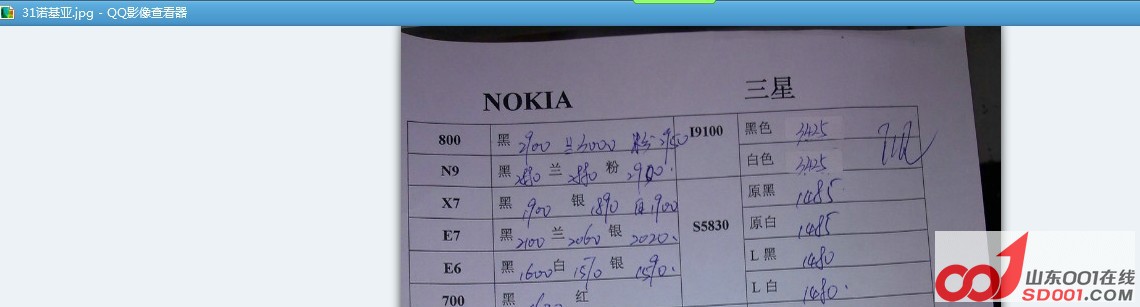 31诺基亚.jpg - QQ影像查看器
NOKIA 三星
800 黑 2900 兰 3000 粉 2950 I9100 黑色 3425
N9 黑 兰 粉 2900. 白色 3425
X7 黑 1900 银 1890 白 1900 S5830 原黑 1485
E7 黑 2100 兰 2060 银 2020. 原白 1485
E6 黑 1600 白 1570 银 1590. L黑 1480
700 黑 红 L白 1480.
山东001在线
SD001.COM